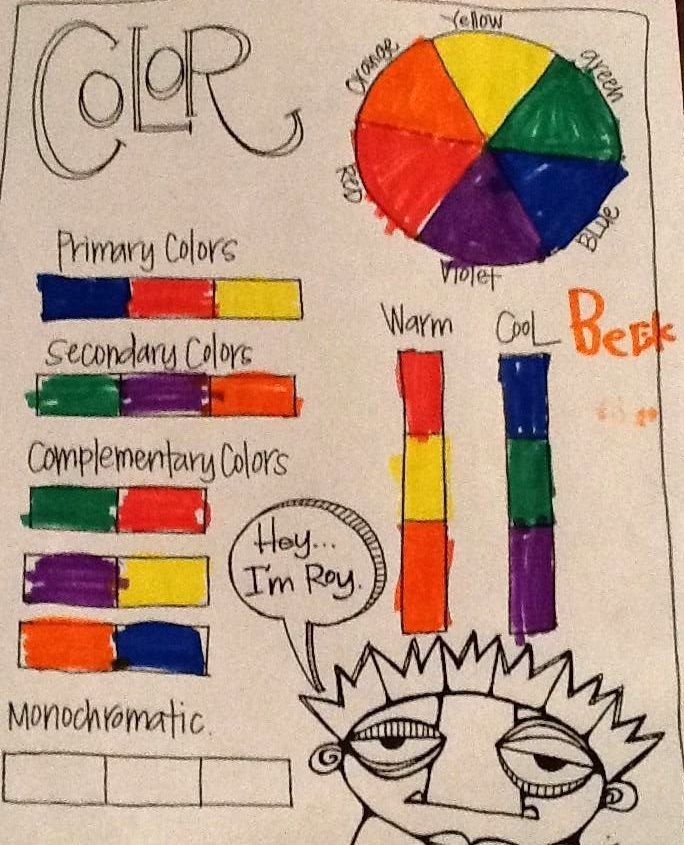 COLOR
Yellow
Orange
green
Red
BLUe
Violet
Primary Colors
Secondary Colors
Complementary Colors
Monochromatic.
Warm
CooL
Beck
Hey...
I'm Roy.